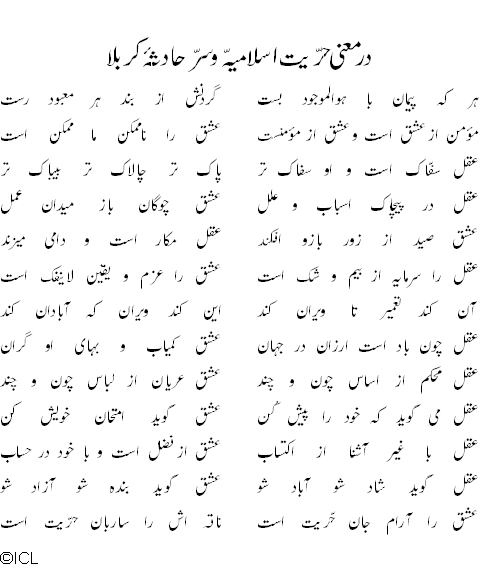 در معنی حرّیت اسلامیہّ و سرّ حادثۂ کربلا
ہر کہ پیمان با ہوالموجود بست گردنش از بند ہر معبود رست
مؤمن از عشق است و عشق از مؤمنست عشق را ناممکن ما ممکن است
عقل سفّاک است و او سفاک تر پاک تر چالاک تر بیباک تر
عقل در پیچاک اسباب و علل عشق چوگان باز میدان عمل
عشق صید از زور بازو افکند عقل مکار است و دامی میزند
عقل را سرمایہ از بیم و شک است عشق را عزم و یقین لاینفک است
آن کند تعمیر تا ویران کند این کند ویران کہ آبادان کند
عقل چون باد است ارزان در جہان عشق کمیاب و بہای او گران
عقل محکم از اساس چون و چند عشق عریان از لباس چون و چند
عقل می گوید کہ خود را پیش کُن عشق گوید امتحان خویش کن
عقل با غیر آشنا از اکتساب عشق از فضل است و با خود در حساب
عقل گوید شاد شو آباد شو عشق گوید بندہ شو آزاد شو
عشق را آرام جان حرّیت است ناقہ اش را ساربان حرّیت است
©ICL